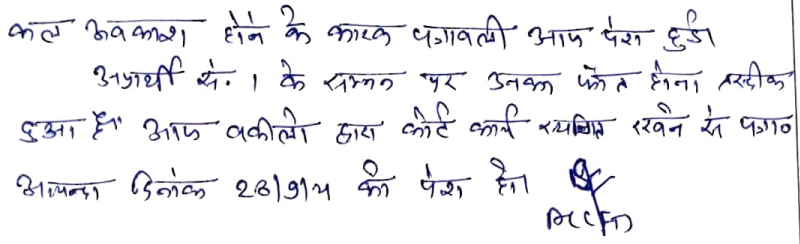 कल अवकाश होने के कारण पत्रावली आज पेश हुई।
अप्रार्थी सं. 1 के सम्मन पर उनका फोत होना तस्दीक
हुआ है। आज वकीलो द्वारा कोर्ट कार्य स्थगित रखने से पत्रा०
आयन्दा दिनांक 26/9/14 को पेश हो।